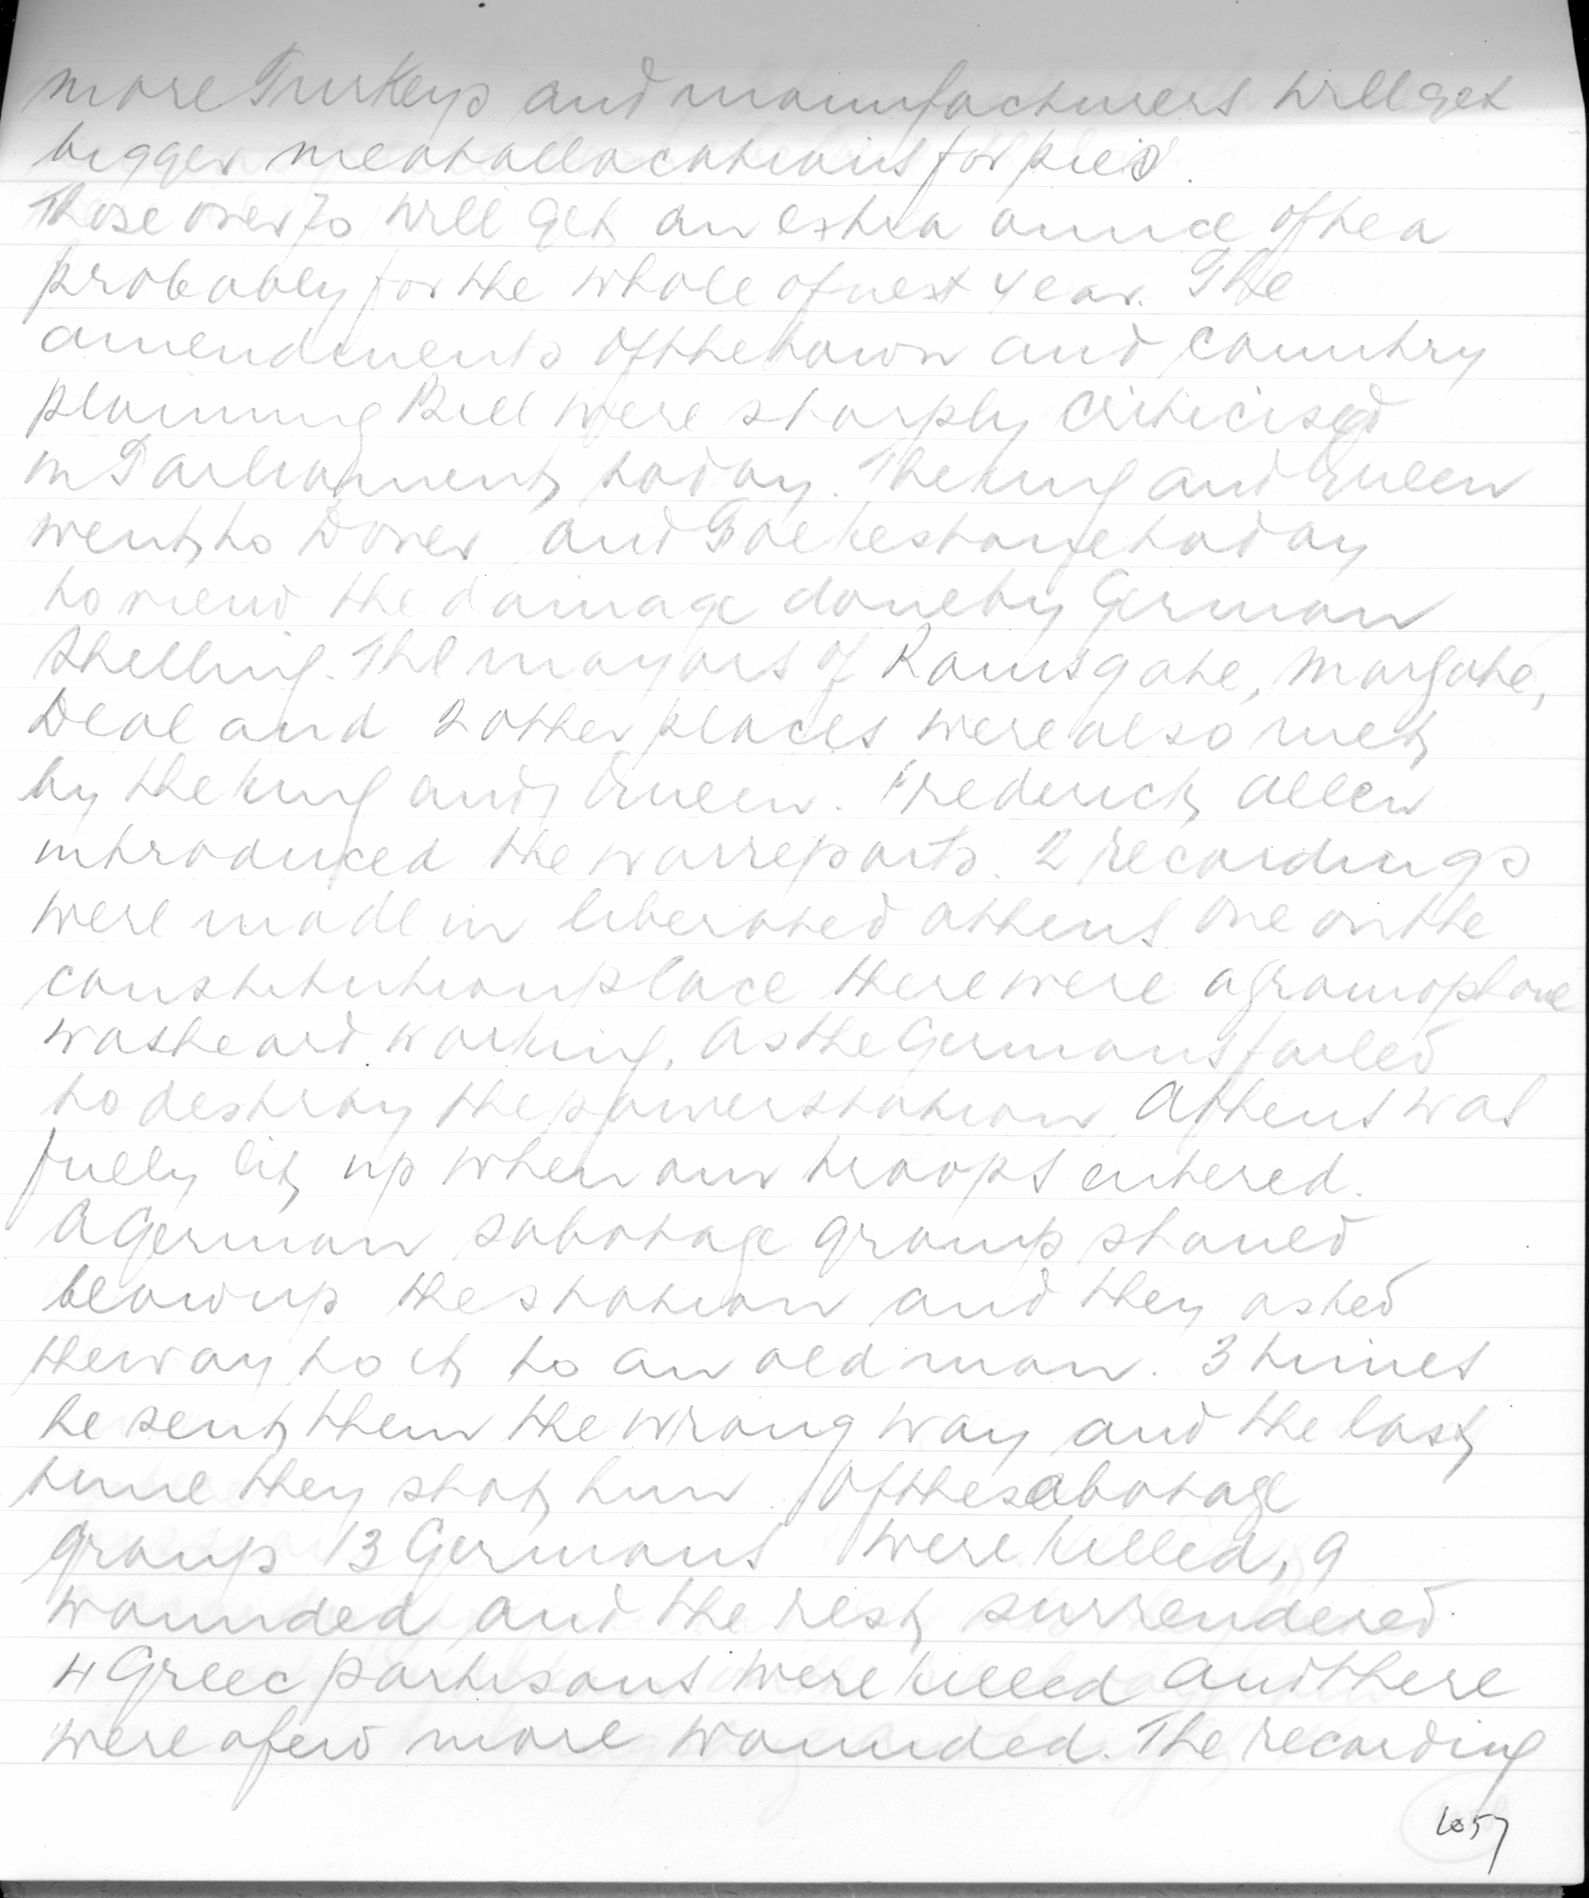 more Turkeys and manufacturers will get
bigger meatallocations for pies.
Those over 70 will get an extra ounce of tea
probably for the whole of next year. The
amendments of the town and country
planning Bill were sharply criticised
in Parliament today. The King and Queen
went to Dover and Folkestone today
to view the damage done by German
shelling. The mayors of Ramsgate, Margate,
Deal and 2 other places were also met
by the King and Queen. Frederick Allen
introduced the warreports. 2 recordings
were made in liberated Athens one on the
constitutionplace there were a gramophone
was heard working. As the Germans failed
to destroy the powerstation Athens was
fully lit up when our troops entered.
A German sabotage group
blow up the station and they asked
the way to it to an old man. 3 times
he sent them the wrong way and the last
time they shot him. Of the sabotage
group 13 Germans were killed, 9
wounded and the rest surrendered
4 Greec partisans were killed and there
were a few more wounded. The recording
1057